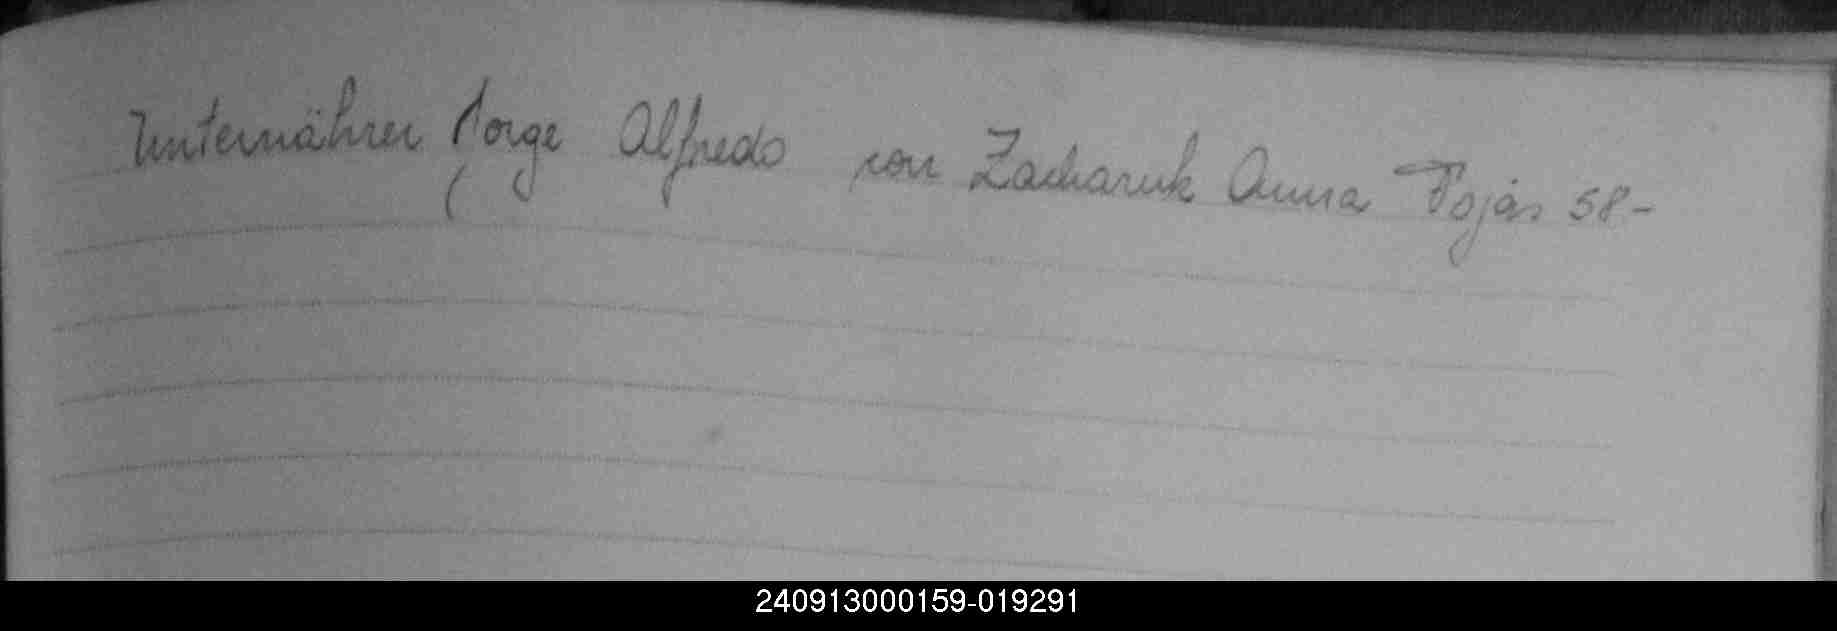 Unternährer Jorge Alfredo con Zacharuk Anna Fojás 58-
240913000159-019291